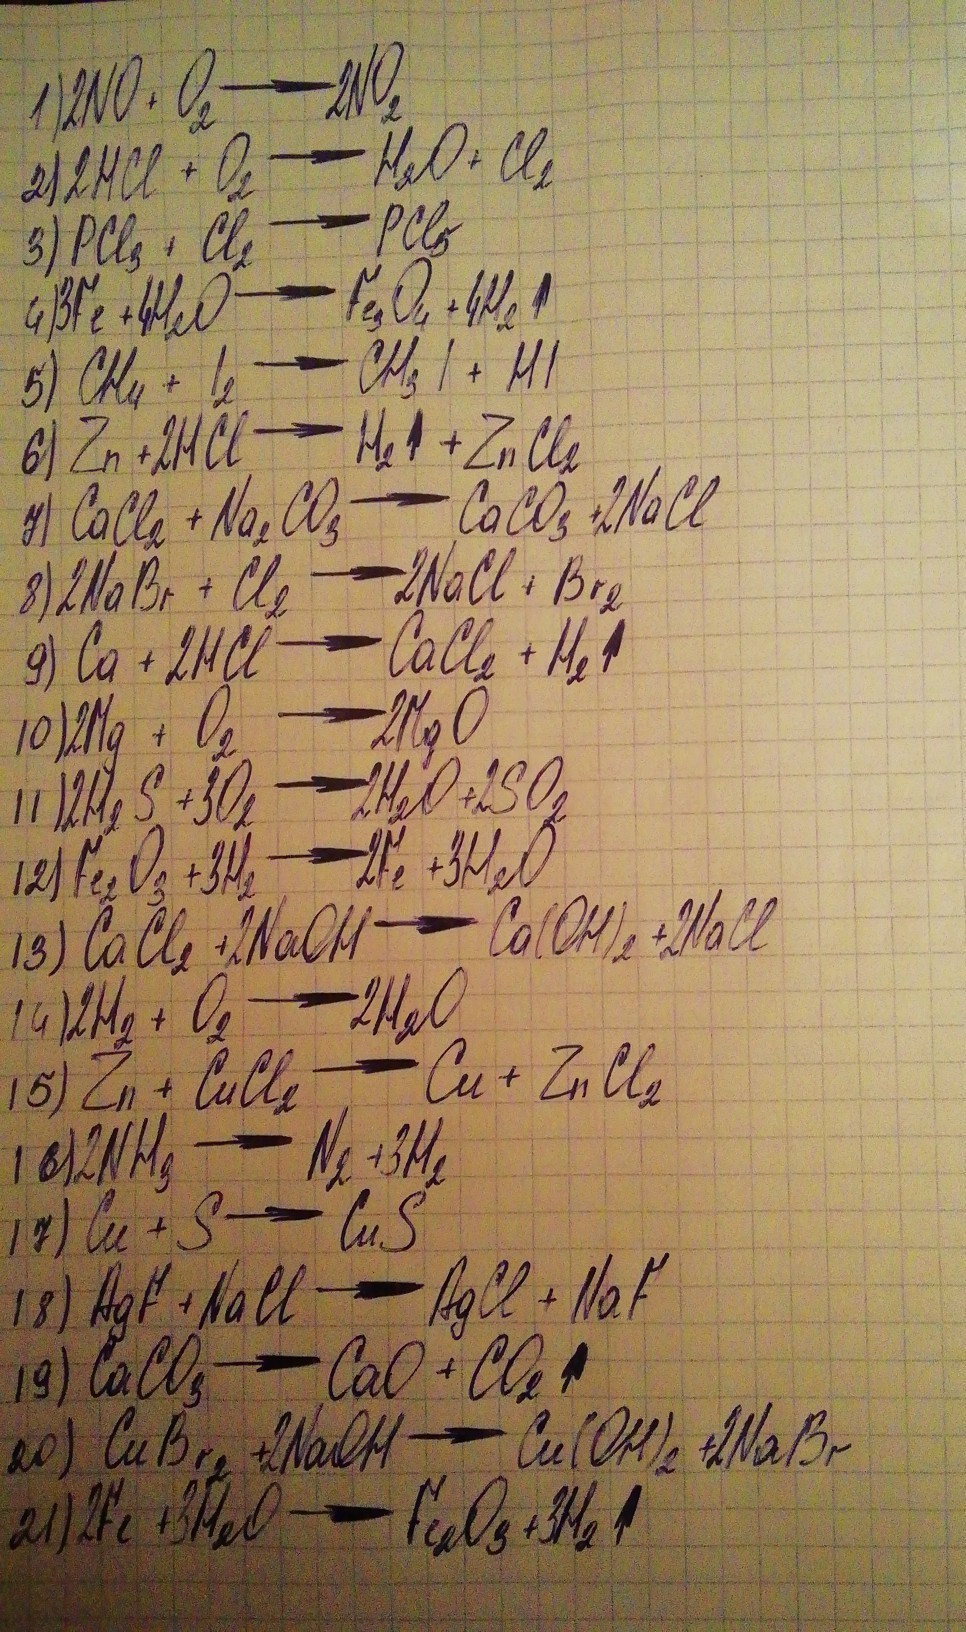 1) 2NO + O₂ → 2NO₂
2) 2HCl + O₂ → H₂O + Cl₂
3) PCl₃ + Cl₂ → PCl₅
4) 3Fe + 4H₂O → Fe₃O₄ + 4H₂↑
5) CH₄ + I₂ → CH₃I + HI
6) Zn + 2HCl → H₂↑ + ZnCl₂
7) CaCl₂ + Na₂CO₃ → CaCO₃ + 2NaCl
8) 2NaBr + Cl₂ → 2NaCl + Br₂
9) Ca + 2HCl → CaCl₂ + H₂↑
10) 2Mg + O₂ → 2MgO
11) 2H₂S + 3O₂ → 2H₂O + 2SO₂
12) Fe₂O₃ + 3H₂ → 2Fe + 3H₂O
13) CaCl₂ + 2NaOH → Ca(OH)₂ + 2NaCl
14) 2H₂ + O₂ → 2H₂O
15) Zn + CuCl₂ → Cu + ZnCl₂
16) 2NH₃ → N₂ + 3H₂
17) Cu + S → CuS
18) AgF + NaCl → AgCl + NaF
19) CaCO₃ → CaO + CO₂↑
20) CuBr₂ + 2NaOH → Cu(OH)₂ + 2NaBr
21) 2Fe + 3H₂O → Fe₂O₃ + 3H₂↑